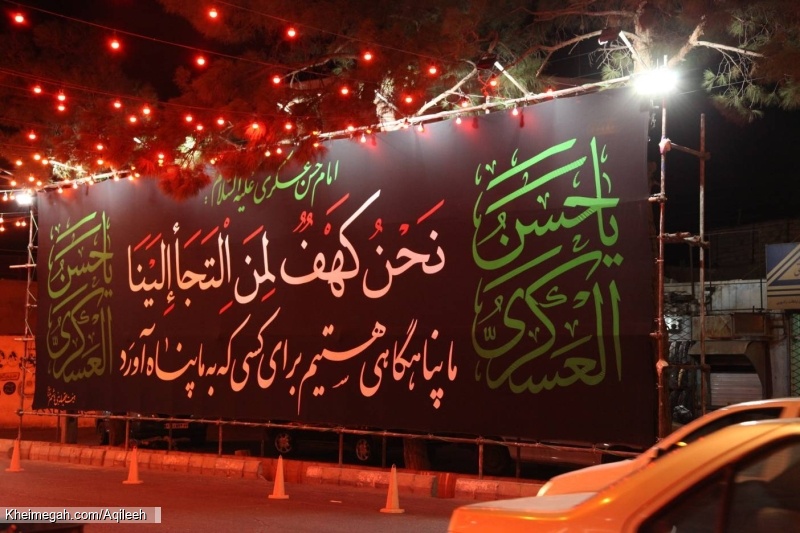 امام حسن عسکری علیه السلام:
یا حسن
العسکری
نَحْنُ كَهْفٌ لِمَنِ الْتَجَأَ إِلَیْنَا
ما پناهگاهی هستیم برای کسی که به ما پناه آورد
یا حسن
العسکری
Kheimegah.com/Aqileeh